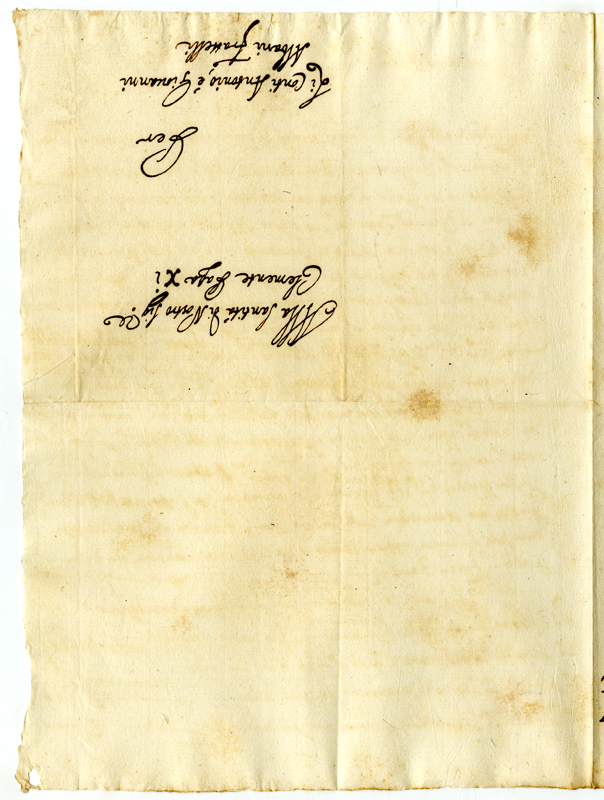 Alla Santità di Nostro Sig.re
Clemente Papa XI
Per
Li Conti Antonio, è Giovanni
Albani Fratelli